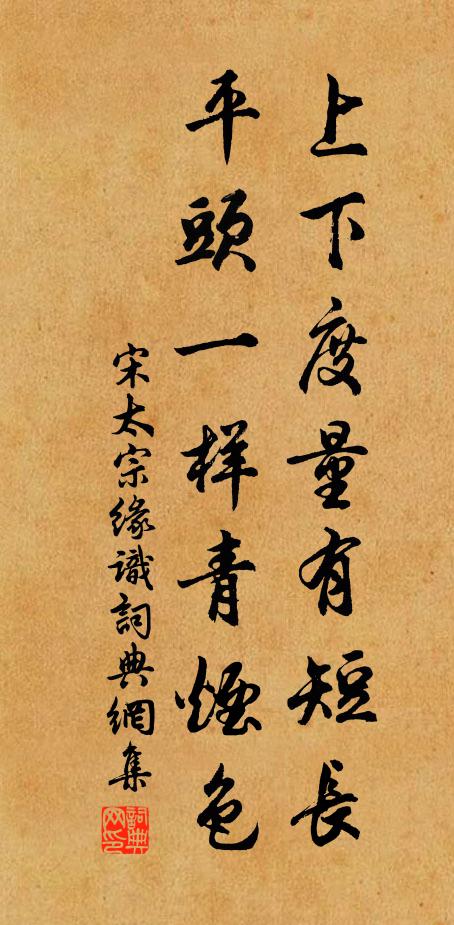 上下度量有短長
平頭一样青煙色
宋太宗緣識詞典網集
詞典
网印